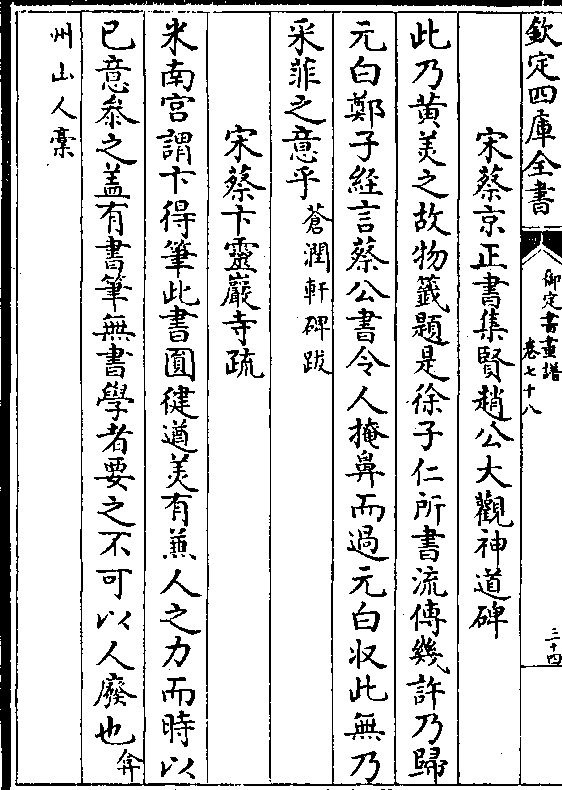 欽定四庫全書
御定書畫譜
卷七十八
三十四
宋蔡京正書集賢趙公大觀神道碑
此乃黄美之故物籤題是徐子仁所書流傳幾許乃歸
元白鄭子經言蔡公書令人掩鼻而過元白收此無乃
采菲之意乎蒼潤軒碑跋
宋蔡卞靈巖寺疏
米南宫謂卞得筆此書圓健遒美有蒹人之力而時以
已意叅之盖有書筆無書學者要之不可以人廢也弇
州山人藁